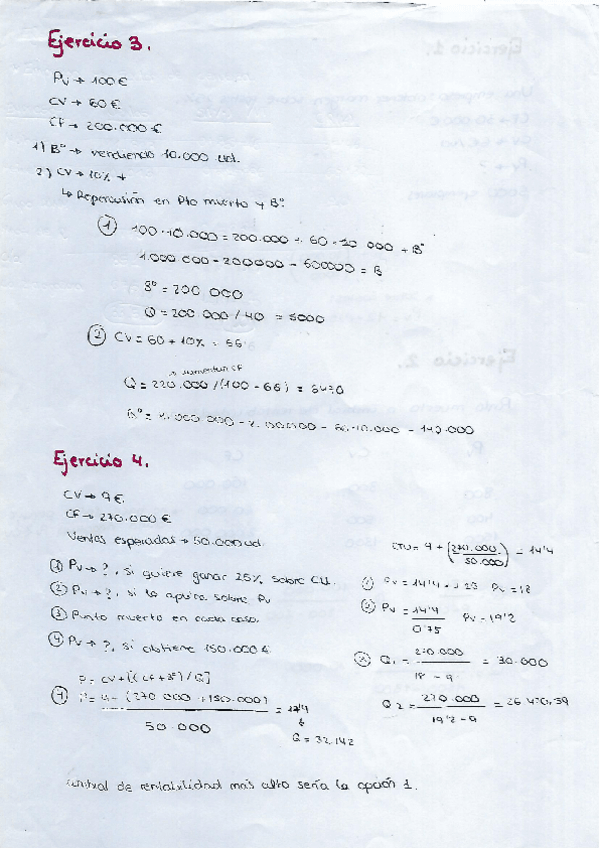 Ejercicio 3.
Pv → 100€
CV → 60€
CF → 200.000€
1) Bº → vendiendo 10.000 ud.
2) CV → 10% +
↳ Repercusión en Pto muerto y Bº.
① 100·10.000 = 200.000 + 60·10 000 + Bº
1.000.000 - 200000 - 600000 = B
Bº = 200.000
Q = 200.000/40 = 5000
② CV = 60 + 10% = 66
Q = 220.000/(100-66) = 6470
Bº = 1.000.000 - 2.00000 - 66·10.000 = 140.000
Ejercicio 4.
CV → 9€.
CF → 270.000€
Ventas esperadas → 50.000 ud.
① Pv → ?, si quiere ganar 25% sobre CU.
② Pv → ?, si lo aplica sobre Pv
③ Punto muerto en cada caso.
④ Pv → ?, si obtiene 150.000€
P = CV + [(CF + Bº)/Q]
④ (270.000 + 150.000)
50.000
= 17'4
Q = 32.142
CTU = 9 + (270.000. / 50.000) = 14'4
① Pv = 14'4 · 1'25 Pv = 18
② Pv = 14'4 / 0'75 Pv = 19'2
③ Q₁ = 270.000 / 18 - 9 = 30.000
Q₂ = 270.000 / 19'2 - 9 = 26.470,59
de rentabilidad más alto sería la opción 1.